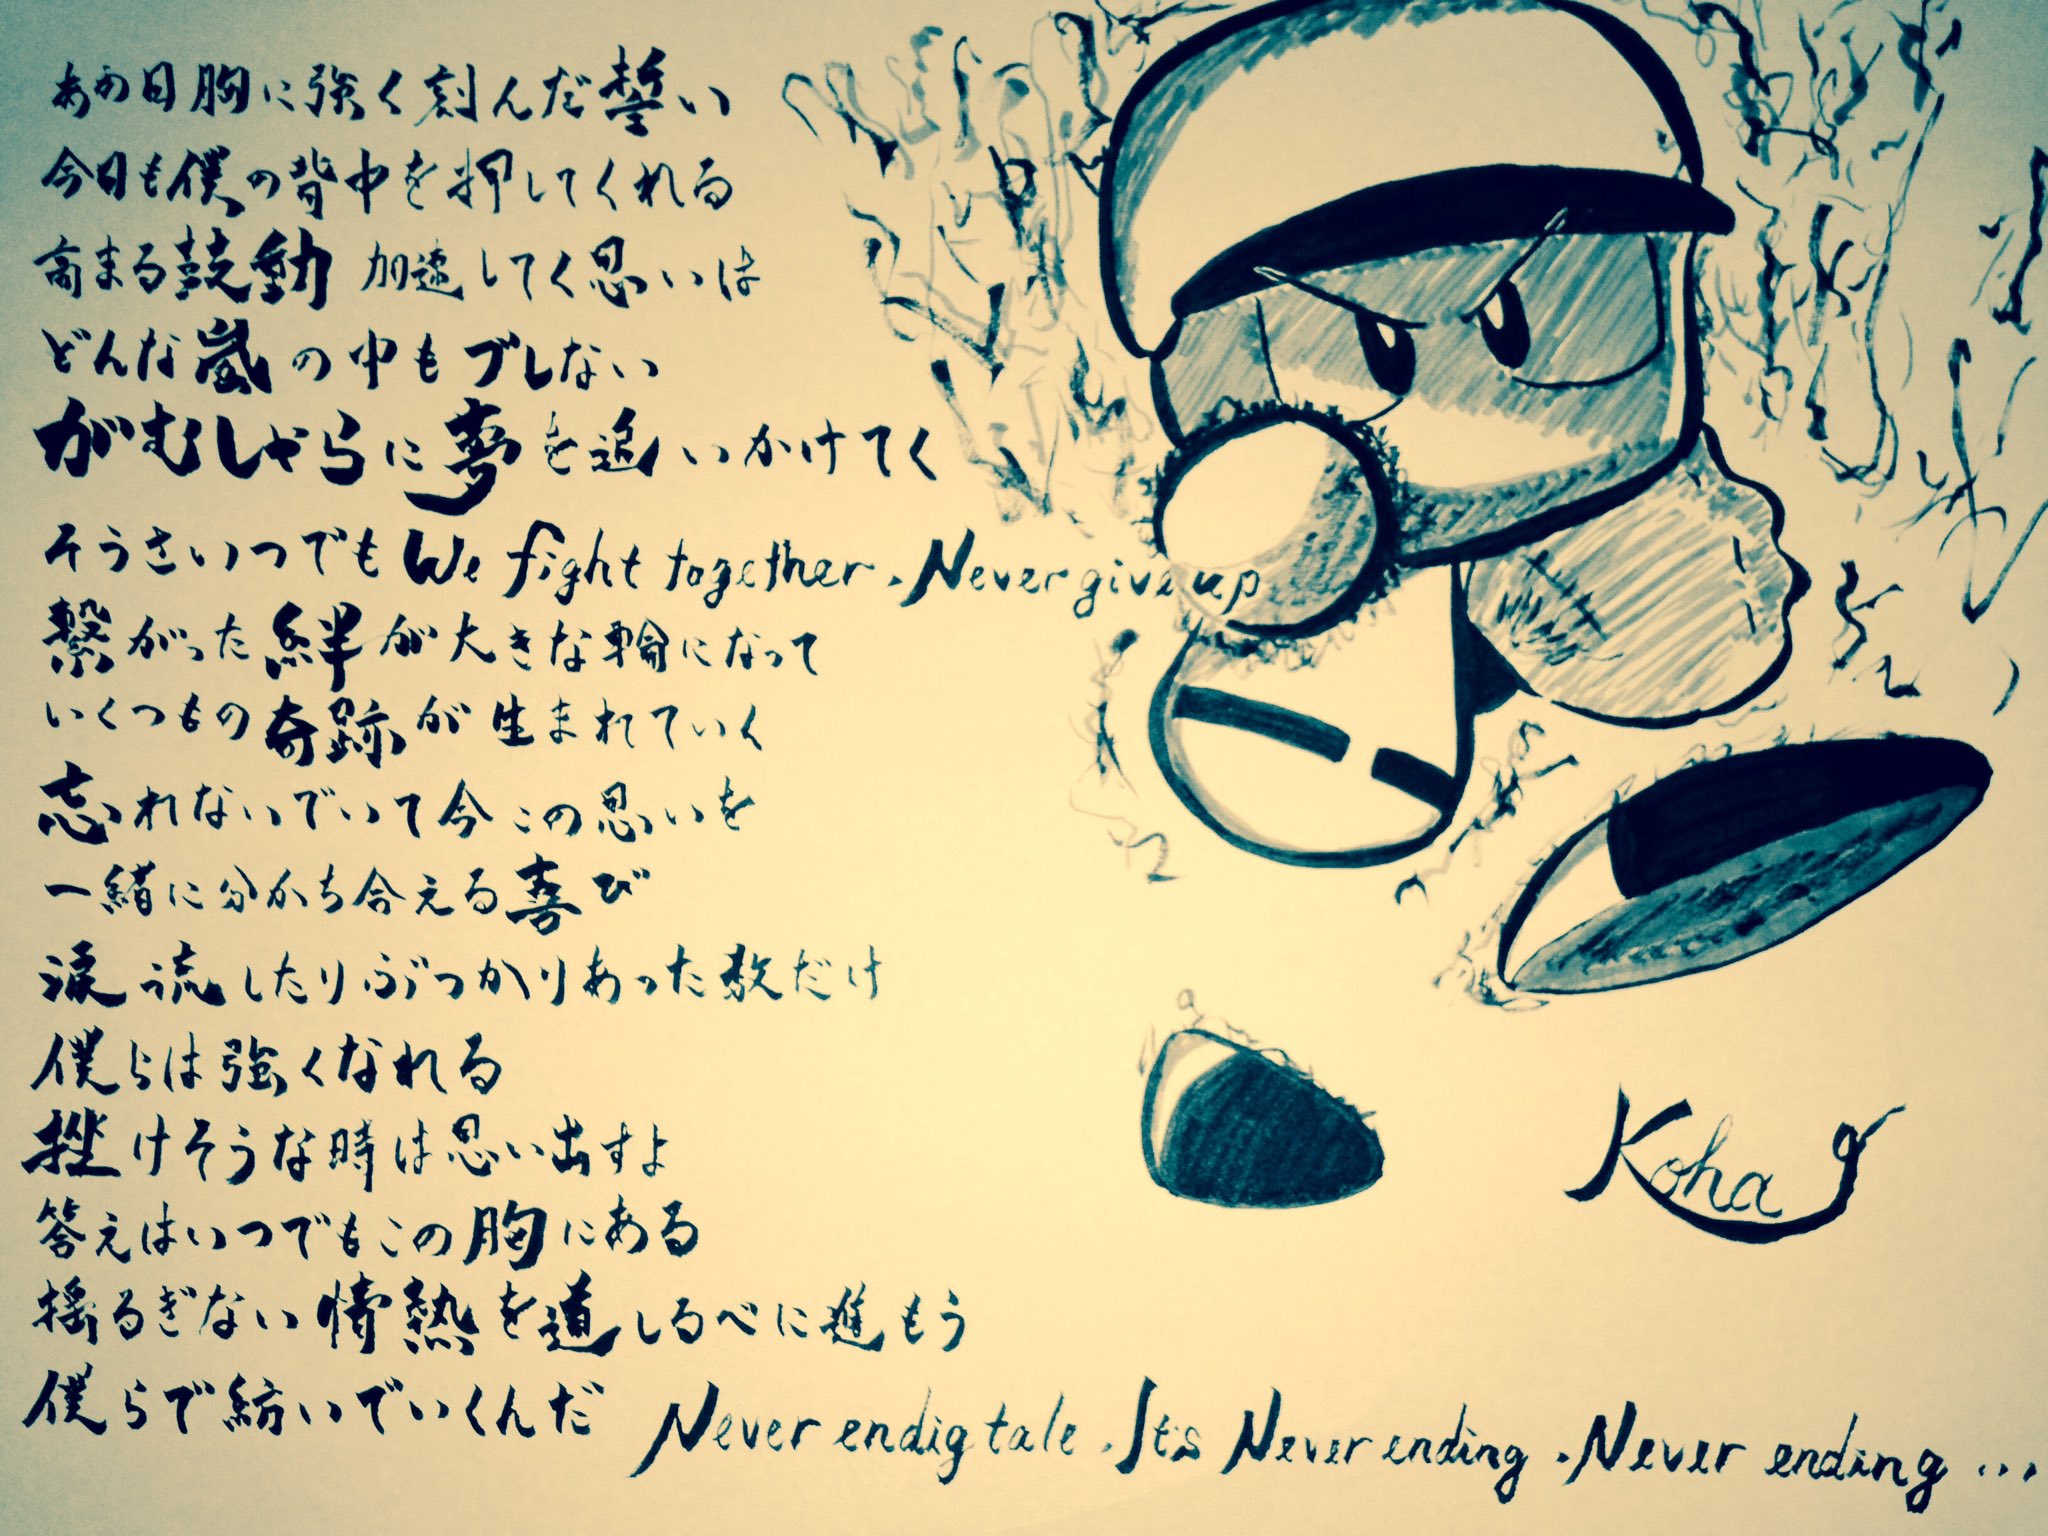 あの日胸に強く刻んだ誓い
今日も僕の背中を押してくれる
高まる鼓動 加速してく思いは
どんな嵐の中もブレない
がむしゃらに夢を追いかけてく
そうさいつでも We fight together. Never give up
繋がった絆が大きな輪になって
いくつもの奇跡が生まれていく
忘れないでいて今この思いを
一緒に分かち合える喜び
涙流したりぶつかりあった数だけ
僕らは強くなれる
挫けそうな時は思い出すよ
答えはいつでもこの胸にある
揺るぎない情熱を道しるべに進もう
僕らで紡いでいくんだ Never endig tale. It's Never ending. Never ending ...
Koha